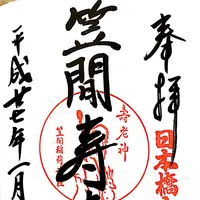 奉拝
日本橋
笠間寿
寿老神
笠間稲荷神社
平成廿七年一月